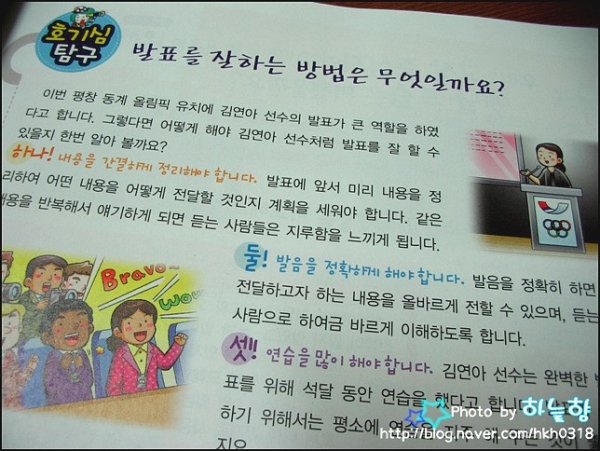 호기심
탐구
발표를 잘하는 방법은 무엇일까요?
이번 평창 동계 올림픽 유치에 김연아 선수의 발표가 큰 역할을 하였
다고 합니다. 그렇다면 어떻게 해야 김연아 선수처럼 발표를 잘 할 수
있을지 한번 알아 볼까요?
하나! 내용을 간결하게 정리해야 합니다. 발표에 앞서 미리 내용을 정
리하여 어떤 내용을 어떻게 전달할 것인지 계획을 세워야 합니다. 같은
내용을 반복해서 얘기하게 되면 듣는 사람들은 지루함을 느끼게 됩니다.
Bravo~
Wow
둘! 발음을 정확하게 해야 합니다. 발음을 정확히 하면
전달하고자 하는 내용을 올바르게 전할 수 있으며, 듣는
사람으로 하여금 바르게 이해하도록 합니다.
셋! 연습을 많이 해야 합니다. 김연아 선수는 완벽한
표를 위해 석달 동안 연습을 했다고 합니다.
하기 위해서는 평소에
지요.
Photo by 하늘향
http://blog.naver.com/hkh0318